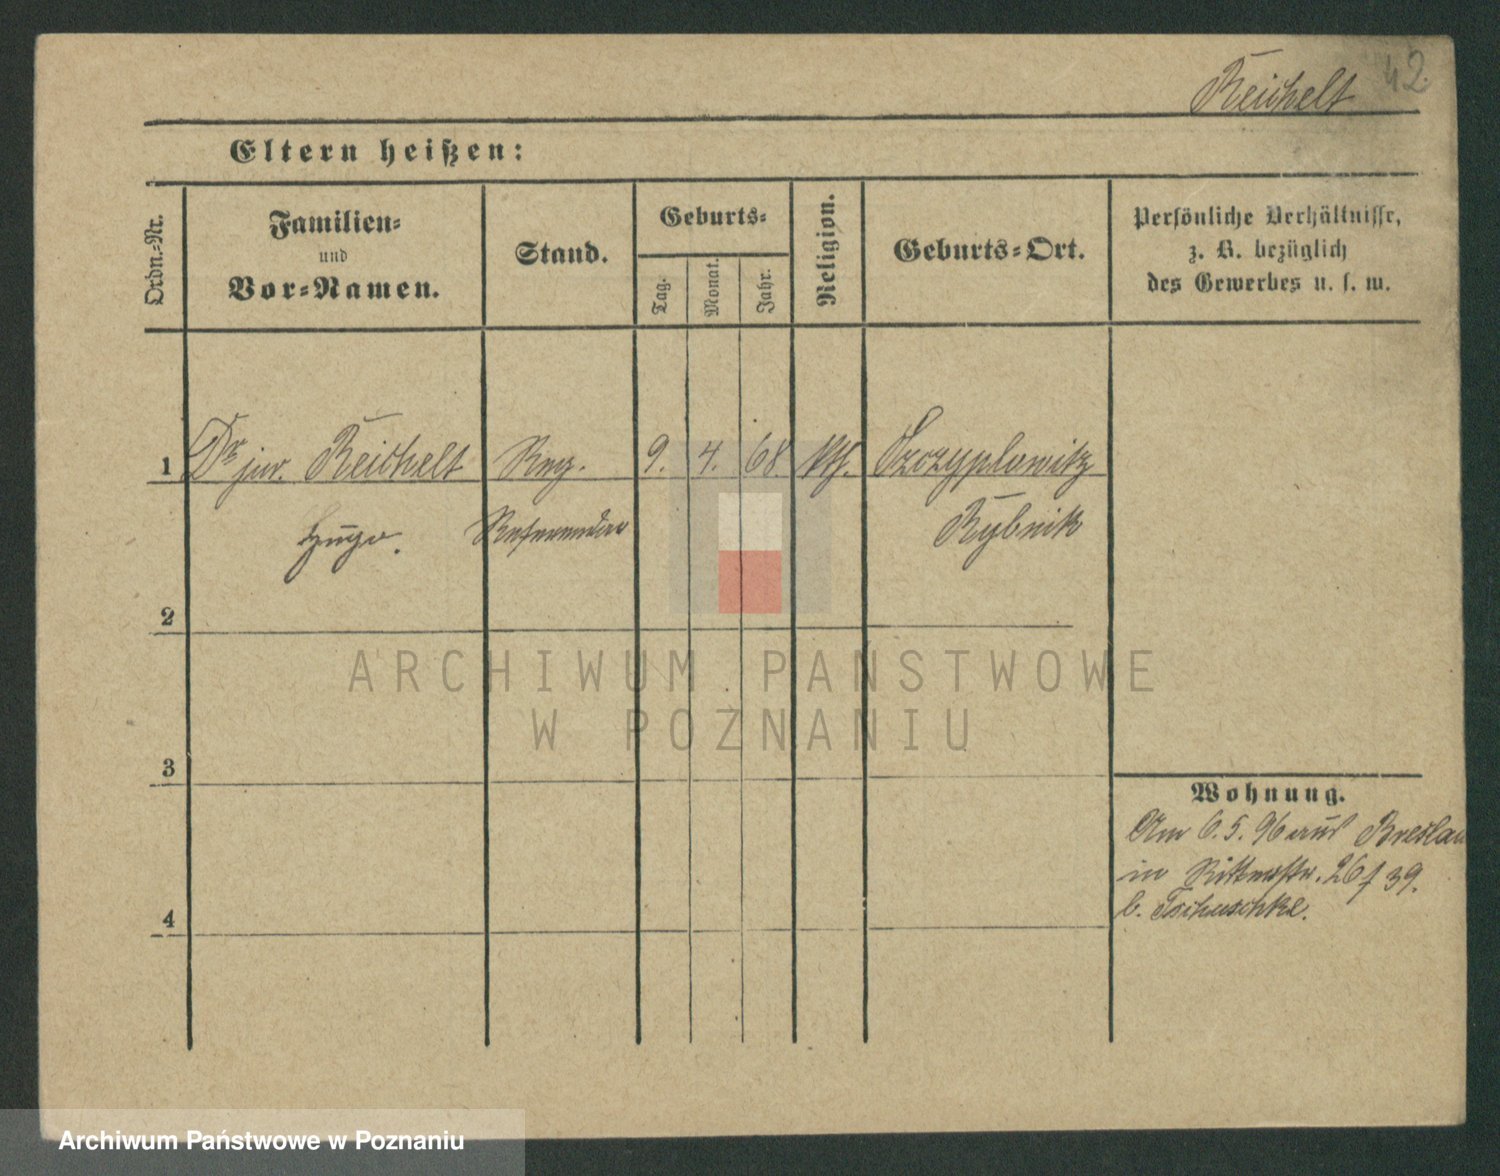 Reichelt 42.
Eltern heißen:
Ordn.-Nr.
Familien-
und
Vor-Namen.
Stand.
Geburts-
Tag.
Monat.
Jahr.
Religion.
Geburts-Ort.
Persönliche Verhältnisse,
z. B. bezüglich
des Gewerbes u. s. w.
1 Dr jur. Reichelt Reg. 9. 4. 68. Szczyglowitz
Hugo. Referendar Rybnik
2
3
4
Wohnung.
Am 6.5.96 aus Breslau
in Ritterstr. 26/39.
b. Tschuschke.
ARCHIWUM PAŃSTWOWE
W POZNANIU
Archiwum Państwowe w Poznaniu